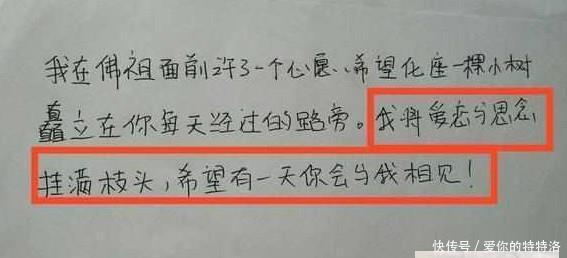 我在佛祖面前许了一个心愿、希望化座一棵小树
矗立在你每天经过的路旁。我将爱恋与思念
挂满枝头,希望有一天你会与我相见!
快传号/爱你的特特洛